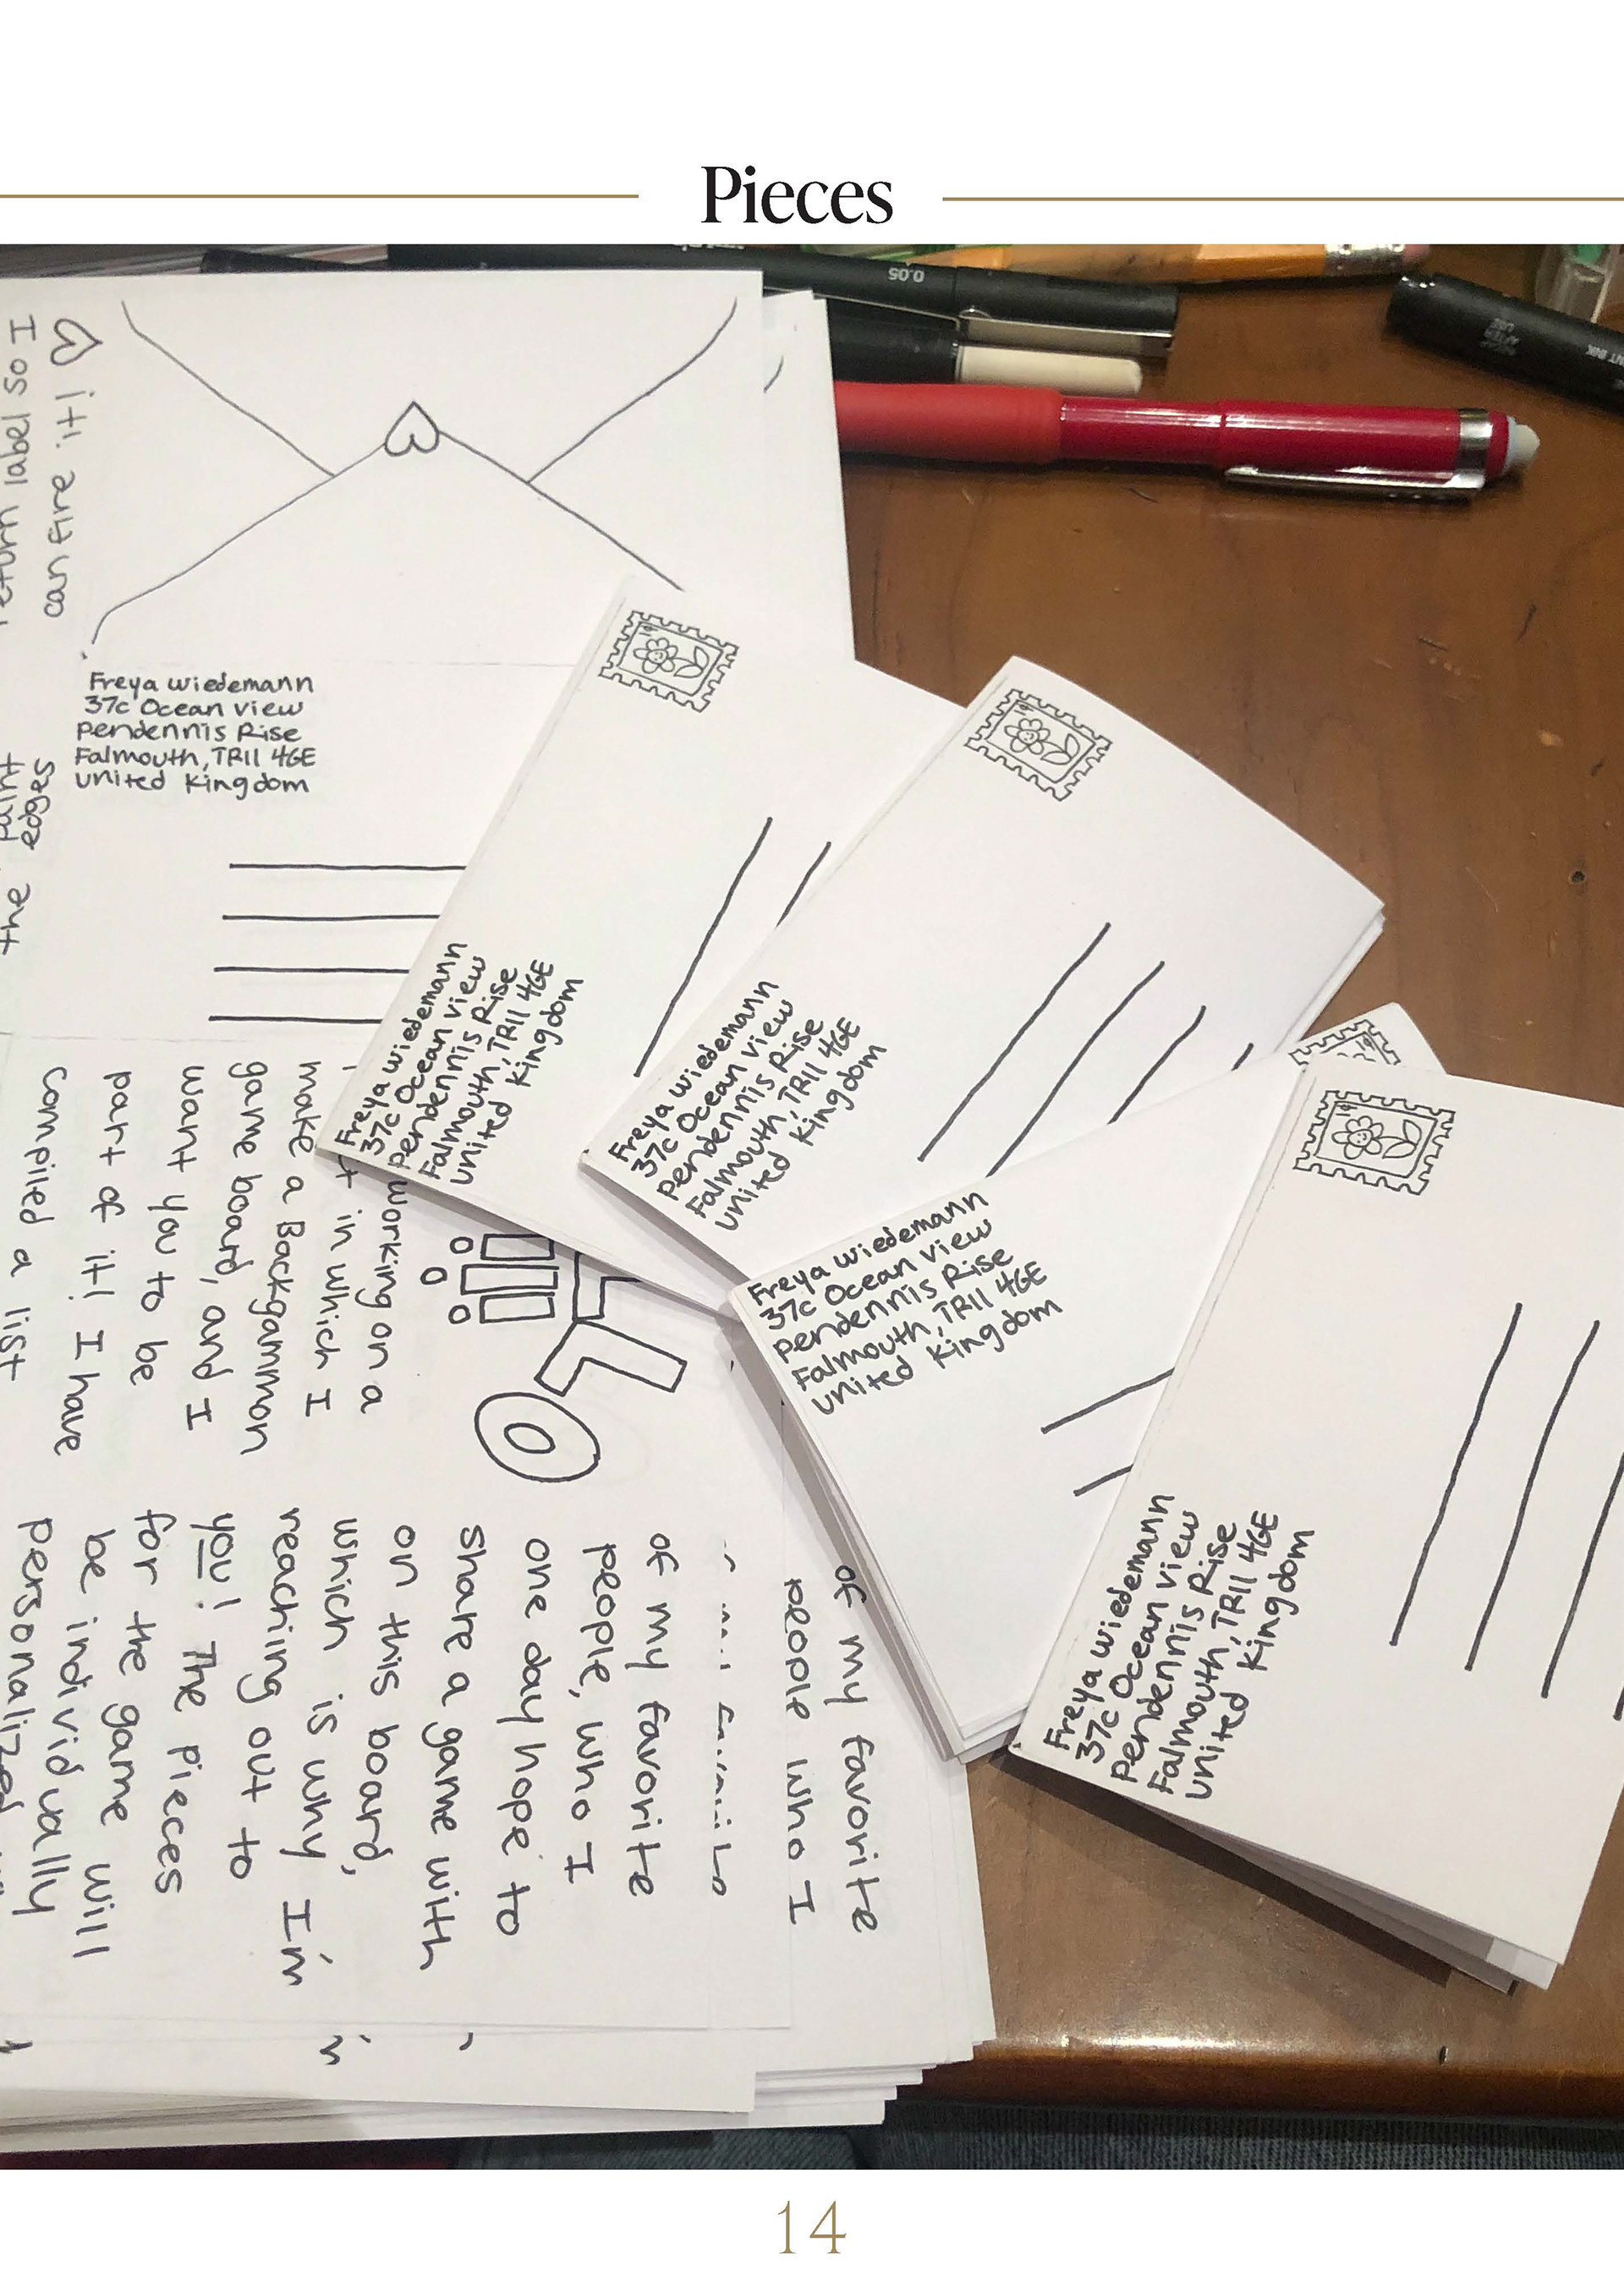 Pieces
0.05
I
return label so
can fire it!
Freya Wiedemann
37c Ocean View
Pendennis Rise
Falmouth, TR11 4GE
United Kingdom
the
edges
working on a
in which I
make a Backgammon
game board, and I
want you to be
part of it! I have
compiled a list
of my favorite
people, who I
one day hope to
share a game with
on this board,
which is why I'm
reaching out to
you! The pieces
for the game will
be individually
personalized
of my favorite
people who I
Freya Wiedemann
37c Ocean View
Pendennis Rise
Falmouth, TR11 4GE
United Kingdom
Freya Wiedemann
37c Ocean View
Pendennis Rise
Falmouth, TR11 4GE
United Kingdom
Freya Wiedemann
37c Ocean View
Pendennis Rise
Falmouth, TR11 4GE
United Kingdom
Freya Wiedemann
37c Ocean View
Pendennis Rise
Falmouth, TR11 4GE
United Kingdom
14